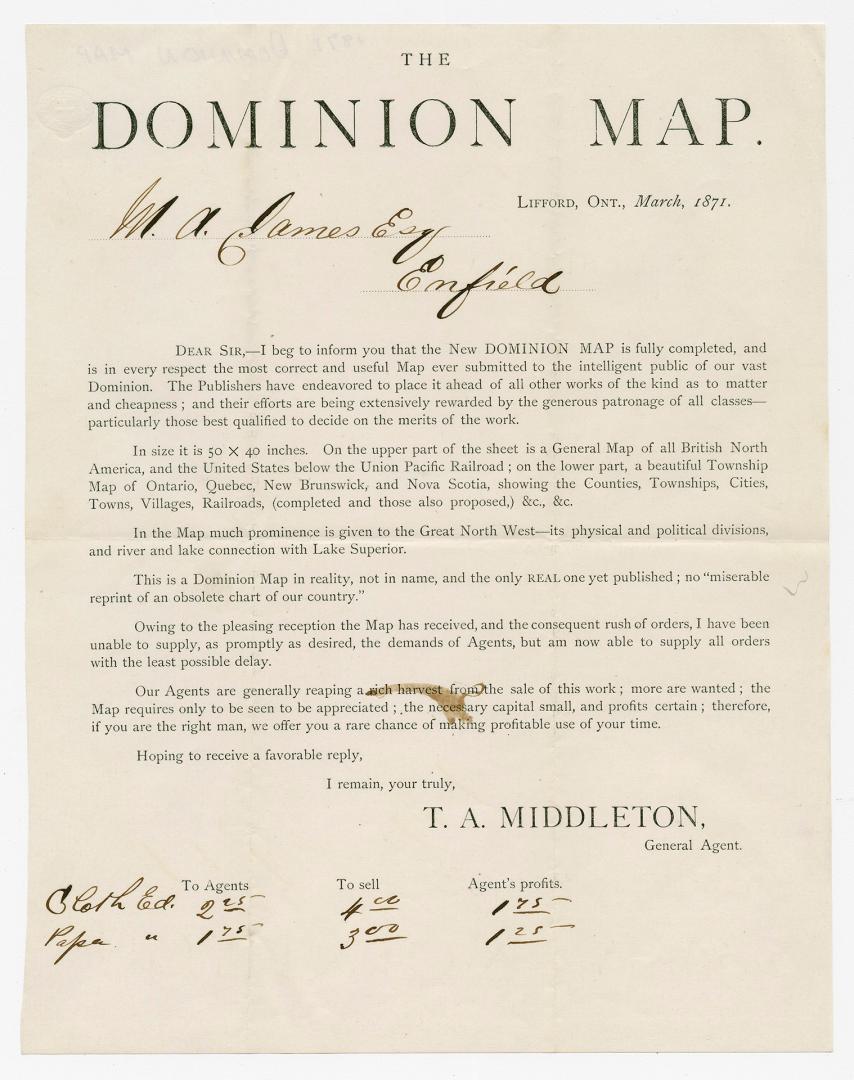 THE
DOMINION MAP.
LIFFORD, ONT., March, 1871.
M. A. James Esq
Enfield
DEAR SIR,—I beg to inform you that the New DOMINION MAP is fully completed, and
is in every respect the most correct and useful Map ever submitted to the intelligent public of our vast
Dominion. The Publishers have endeavored to place it ahead of all other works of the kind as to matter
and cheapness ; and their efforts are being extensively rewarded by the generous patronage of all classes—
particularly those best qualified to decide on the merits of the work.
In size it is 50 × 40 inches. On the upper part of the sheet is a General Map of all British North
America, and the United States below the Union Pacific Railroad ; on the lower part, a beautiful Township
Map of Ontario, Quebec, New Brunswick, and Nova Scotia, showing the Counties, Townships, Cities,
Towns, Villages, Railroads, (completed and those also proposed,) &c., &c.
In the Map much prominence is given to the Great North West—its physical and political divisions,
and river and lake connection with Lake Superior.
This is a Dominion Map in reality, not in name, and the only REAL one yet published ; no "miserable
reprint of an obsolete chart of our country."
Owing to the pleasing reception the Map has received, and the consequent rush of orders, I have been
unable to supply, as promptly as desired, the demands of Agents, but am now able to supply all orders
with the least possible delay.
Our Agents are generally reaping a rich harvest from the sale of this work ; more are wanted ; the
Map requires only to be seen to be appreciated ; the necessary capital small, and profits certain ; therefore,
if you are the right man, we offer you a rare chance of making profitable use of your time.
Hoping to receive a favorable reply,
I remain, your truly,
T. A. MIDDLETON,
General Agent.
To Agents To sell Agent's profits.
Cloth Ed. 2 25 4 00 1 75
Papa " 1 75 3 00 1 25